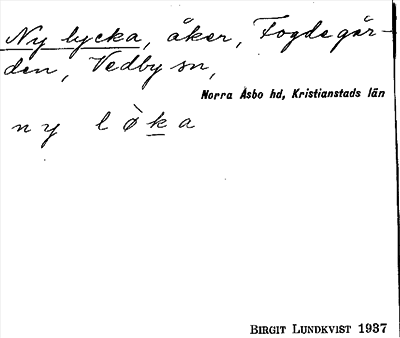 Ny lycka, åker, Fogdegår-
den, Vedby sn,
Norra Åsbo hd, Kristianstads län
ny lø̀ka
BIRGIT LUNDKVIST 1937